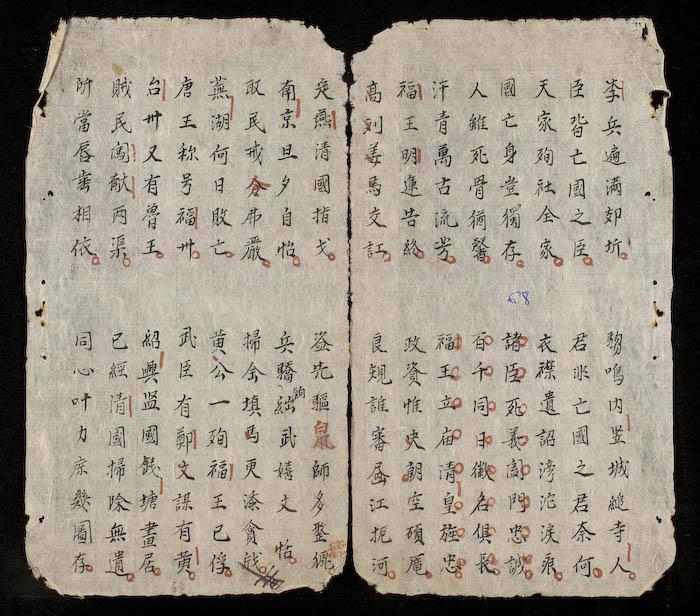 李兵遍滿郊圻
鳴内竖城縋寺人
臣皆亡國之臣
君非亡國之君奈何
天家殉社全家
衣襟遺詔滂沱淚痕
國亡身豈獨存
諸臣死義闔門忠誠
人雖死骨猶馨
百千同日徽名俱長
汗青萬古流号
福王立庙清皇旌忠
福王明運告終
政資惟史朝空碩
高刘姜馬交訌
良規誰審江扼河
68
定燕清國指戈
盗先驅鼠師多佩
南京旦夕自怡
兵驕武嬉文恬
取民戒令弗嚴
掃舍填馬更添貪
蕪湖何日敗亡
黄公一殉福王已俘
唐王称号福卅
武臣有鄭文謀有黄
台卅又有魯王
紹興監國錢塘畫居
賊民闯献两渠
已經清國掃除無遺
所當唇齒相依
同心叶力庶幾圖存